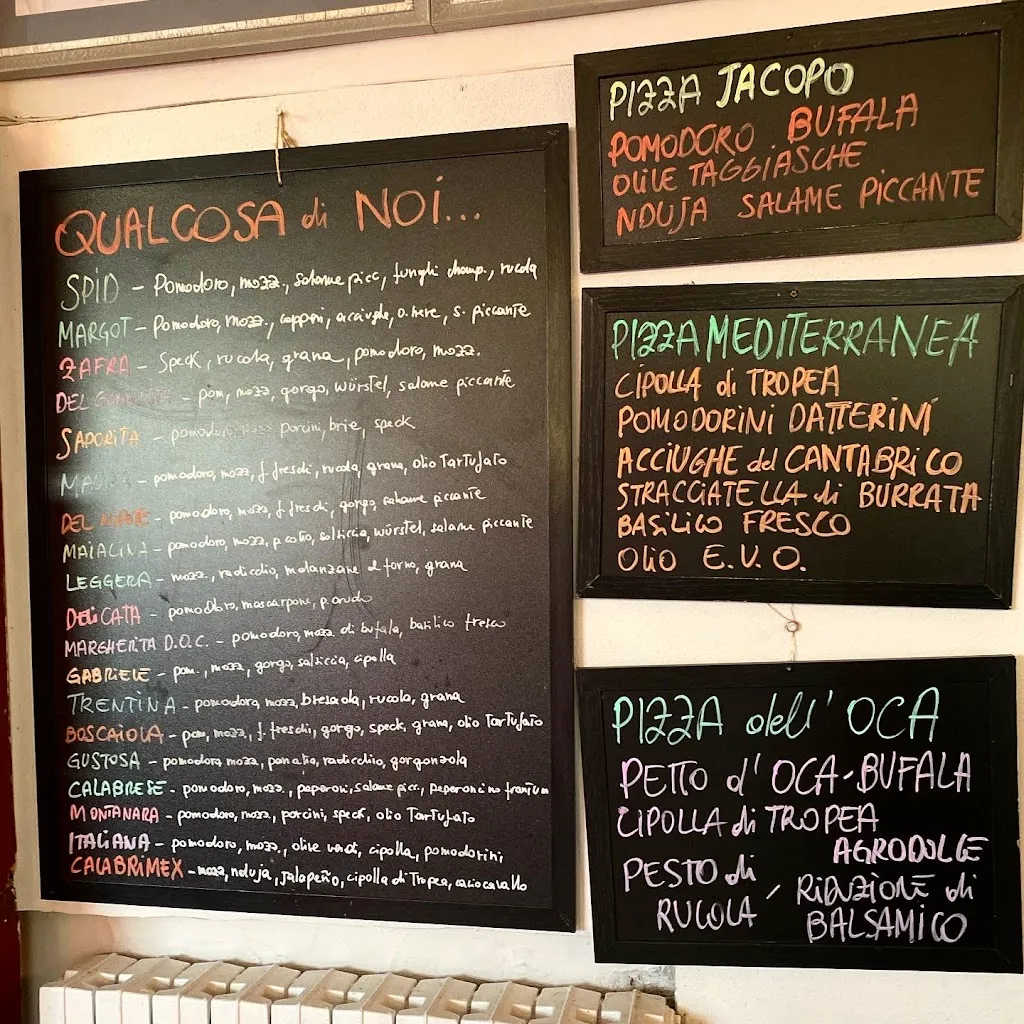 QUALCOSA di NOi...
SPID - Pomodoro, mozz., salame picc, funghi champ., rucola
MARGOT - Pomodoro, mozz., capperi, acciughe, o. nere, s. piccante
ZAFRA - Speck, rucola, grana, pomodoro, mozz.
DEL - pom, mozz, gorgo, würstel, salame piccante
SAPORITA - pomodoro, porcini, brie, speck
MAURA - pomodoro, mozz, f. freschi, rucola, grana, olio Tartufato
DEL - pomodoro, mozz, f. freschi, gorgo, salame piccante
MAIALINA - pomodoro, mozz, p. cotto, salsiccia, würstel, salame piccante
LEGGERA - mozz., radicchio, melanzane al forno, grana
DELICATA - pomodoro, mascarpone, p. crudo
MARGHERITA D.O.C. - pomodoro, mozz. di bufala, basilico fresco
GABRIELE - pom., mozz, gorgo, salsiccia, cipolla
TRENTINA - pomodoro, mozz, bresaola, rucola, grana
BOSCAIOLA - pom, mozz, f. freschi, gorgo, speck, grana, olio Tartufato
GUSTOSA - pomodoro, mozz, pancetta, radicchio, gorgonzola
CALABRESE - pomodoro, mozz., peperoni, salame picc., peperoncino frantum
MONTANARA - pomodoro, mozz, porcini, speck, olio Tartufato
ITALIANA - pomodoro, mozz., olive verdi, cipolla, pomodorini
CALABRIMEX - mozz, nduja, jalapeño, cipolla di Tropea, caciocavallo
PIZZA JACOPO
POMODORO BUFALA
OLIVE TAGGIASCHE
NDUJA SALAME PICCANTE
PIZZA MEDITERRANEA
CIPOLLA di TROPEA
POMODORINI DATTERINI
ACCIUGHE del CANTABRICO
STRACCIATELLA di BURRATA
BASILICO FRESCO
OLIO E.V.O.
PIZZA dell' OCA
PETTO d' OCA-BUFALA
CIPOLLA di TROPEA
AGRODOLCE
PESTO di RUCOLA / RIDUZIONE di BALSAMICO